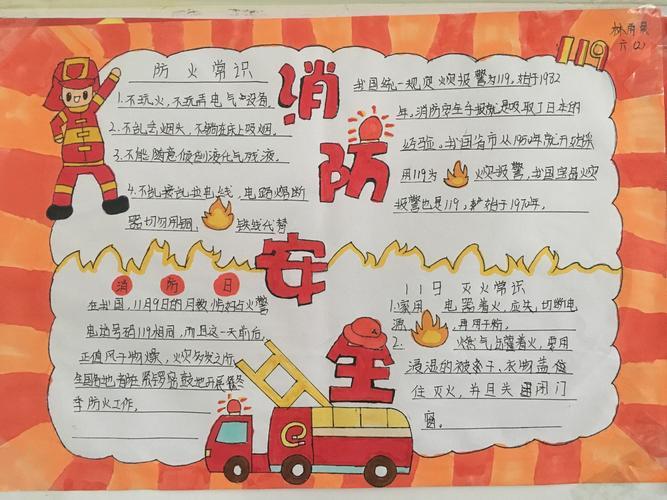 林雨
六(2)
119
消防安全
防火常识
1.不玩火,不玩弄电气设备。
2.不乱丢烟头,不躺在床上吸烟。
3.不能随意倾倒液化气残液。
4.不乱接乱拉电线,电路熔断
器切勿用铜、铁线代替
我国统一规定火灾报警为119,始于1982
年。消防安全手报就是吸取了日本的
经验。我国省市从1950年就开始采
用119为火灾报警,我国台
报警也是119,始于1970年。
消防日
在我国,11月9日的月数恰好与火警
电话号码119相同,而且这一天前后,
正值风干物燥,火灾多发之际,
全国各地都在紧锣密鼓地开展
季防火工作。
119灭火常识
1.家用电器着火,应先切断电
源
2.燃气点着火,要用
浸湿的被子、衣物盖
住灭火,并且关闭阀门